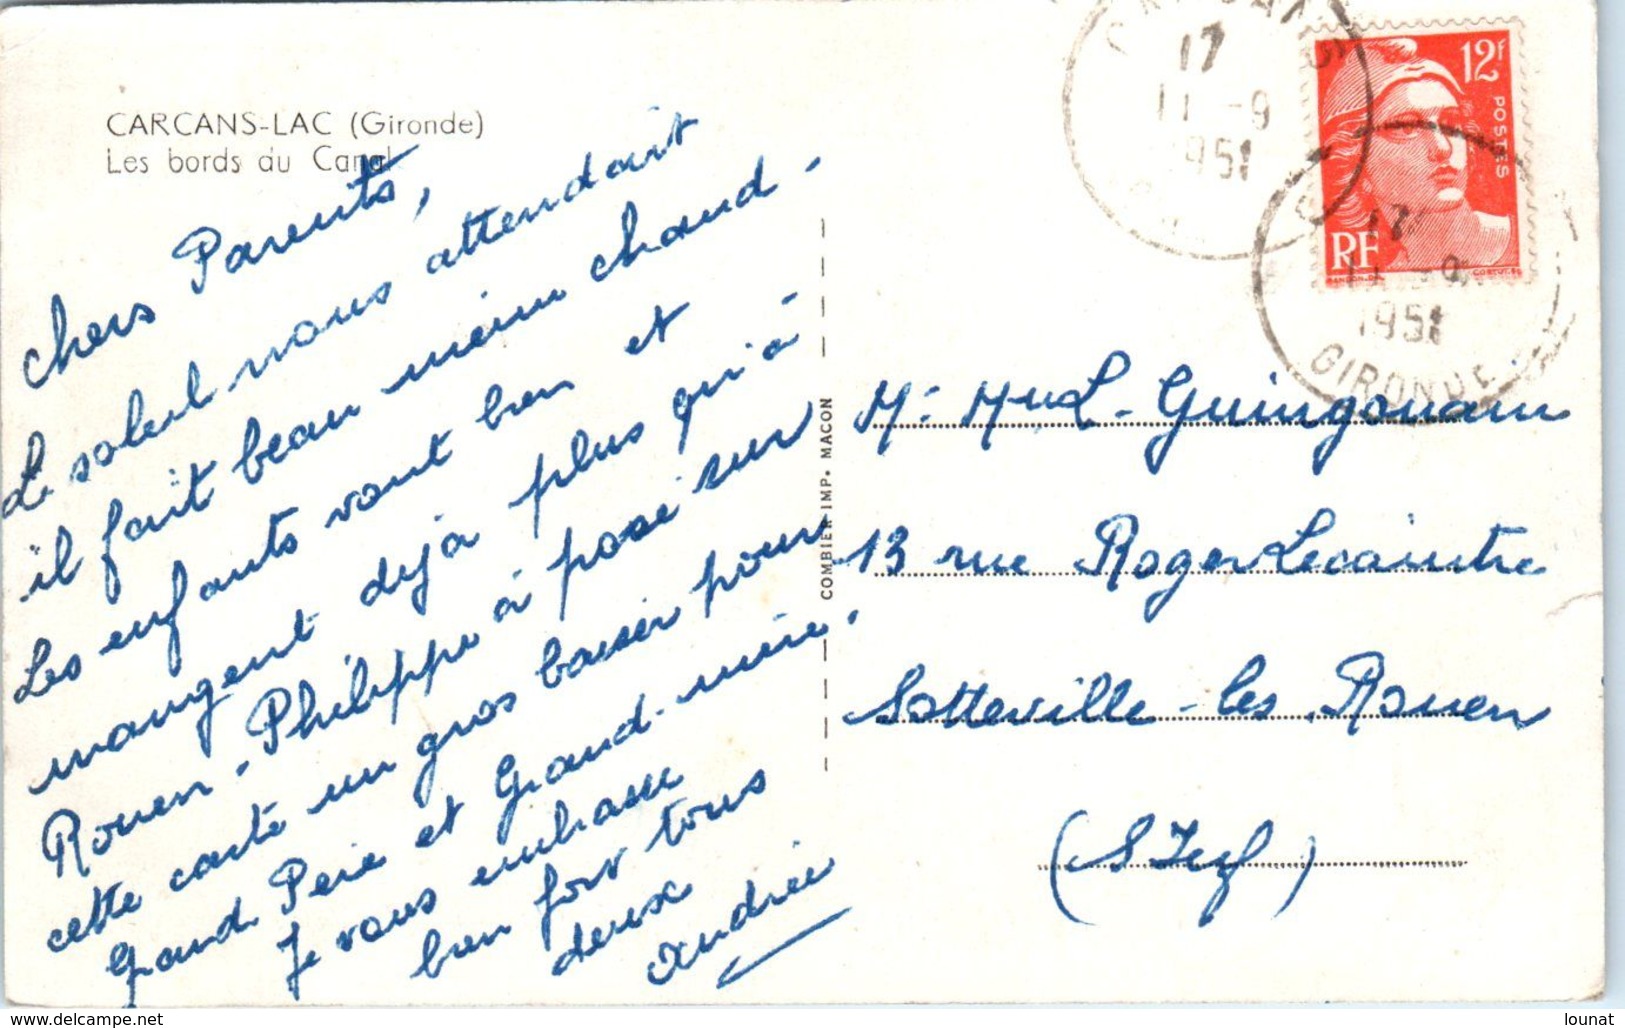 CARCANS-LAC (Gironde)
Les bords du Canal
Chers Parents,
Le soleil nous attendait
il fait beau même chaud -
Les enfants vont bien et
mangent déjà plus qu'à
Rouen - Philippe à posé sur
cette carte un gros baiser pour
Grand Père et Grand-mère.
Je vous embrasse
bien fort tous
deux
Andrée
COMBIER IMP. MACON
12F
POSTES
RF
17
11 -9
1951
17
11 -9
1951
GIRONDE
Mr Mme L. Guingouain
13 rue Roger Lecaintre
Sotteville-les Rouen
(S Infre)
www.delcampe.net
lounat